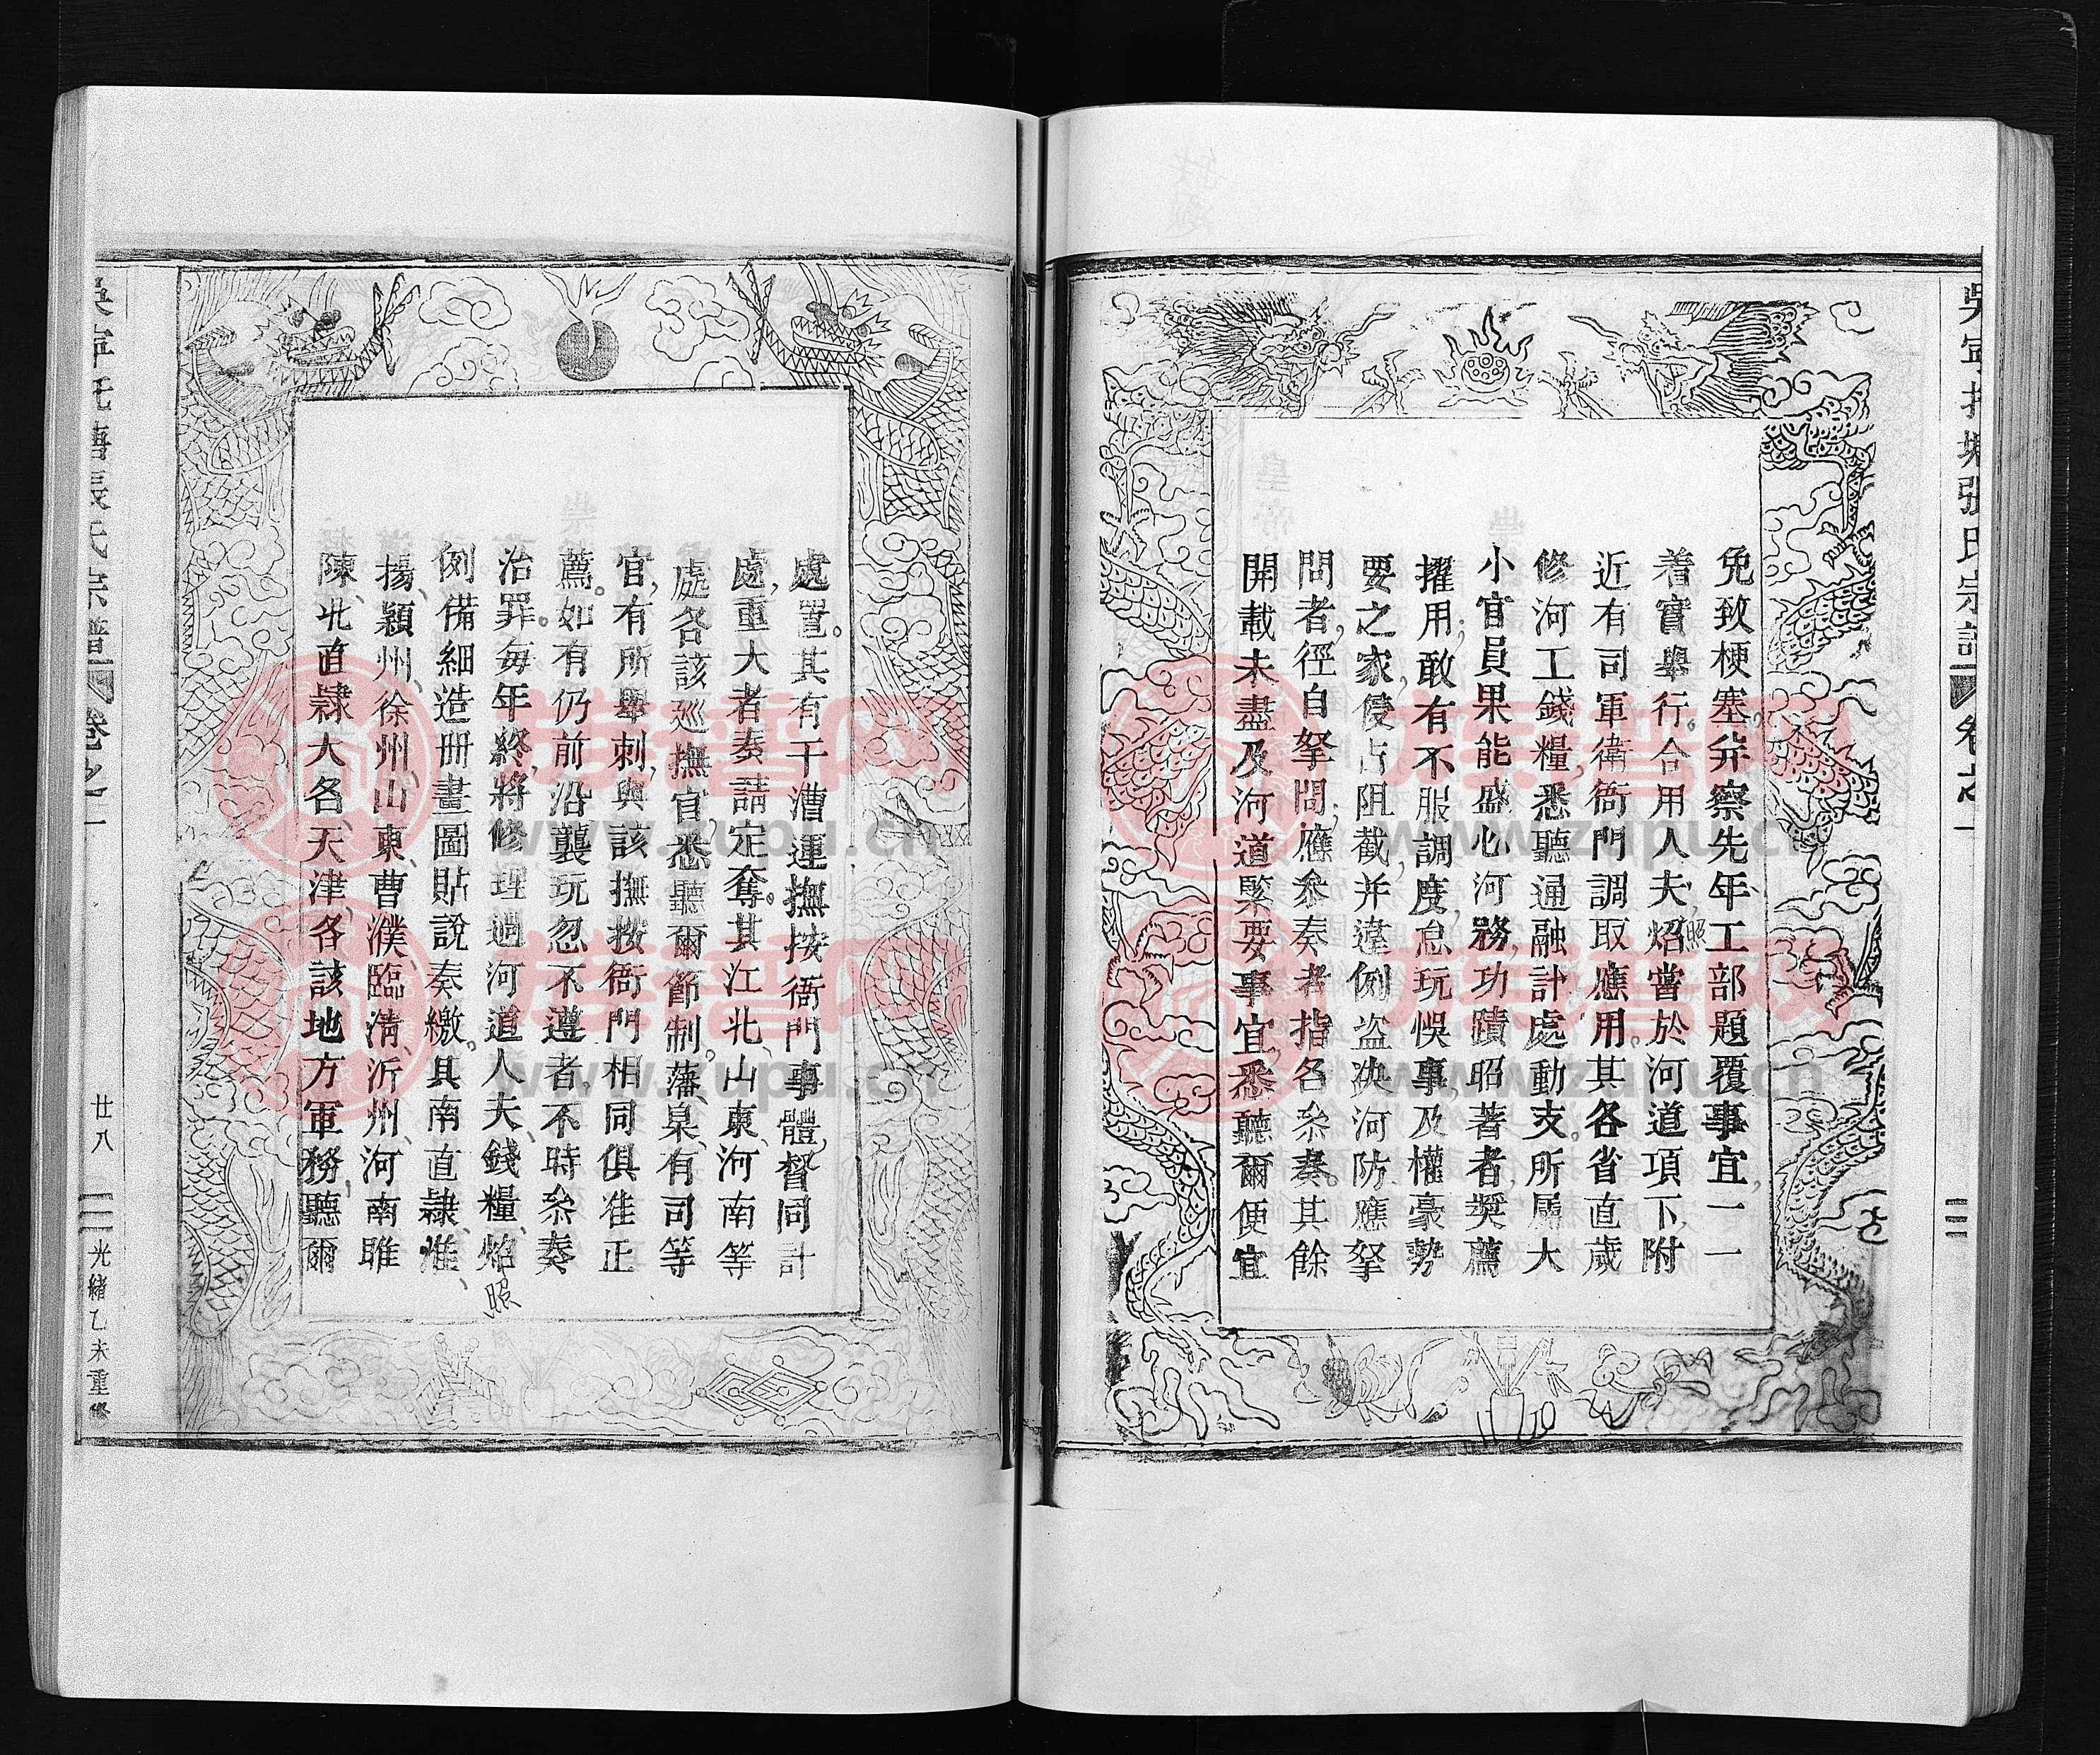 免致梗塞。并察先年工部題覆事宜,一一
着實舉行。合用人夫,炤嘗於河道項下附
照
近有司軍衛衙門調取應用。其各省直歲
修河工錢糧,悉聽通融計處動支。所屬大
小官員果能盛心河務,功蹟昭著者,奨薦
擢用,敢有不服調度,怠玩悞事,及權豪勢
要之家,侵占阻截,并違例盜決河防應拏
問者,徑自拏問,應叅奏者,指名叅奏。其餘
開載未盡及河道緊要事宜,悉聽爾便宜
處置。其有干漕運撫按衙門事體,督同計
處,重大者奏請定奪。其江北、山東、河南等
處各該巡撫官,悉聽爾節制。藩臬、有司等
官,有所舉刺,與該撫按衙門相同,俱准正
薦。如有仍前沿襲玩忽不遵者,不時叅奏
治罪。每年終,將修理過河道人夫、錢糧,炤
照
例備細造冊,畫圖貼說奏繳。其南直隸、淮、
揚、潁州、徐州、山東、曹、濮、臨清、沂州、河南睢
陳、北直隸大名、天津,各該地方軍務,聽爾
氏宗譜 卷之一
廿八
光緒乙未重修
www.zupu.cn
www.zupu.cn
www.zupu.cn
www.zupu.cn